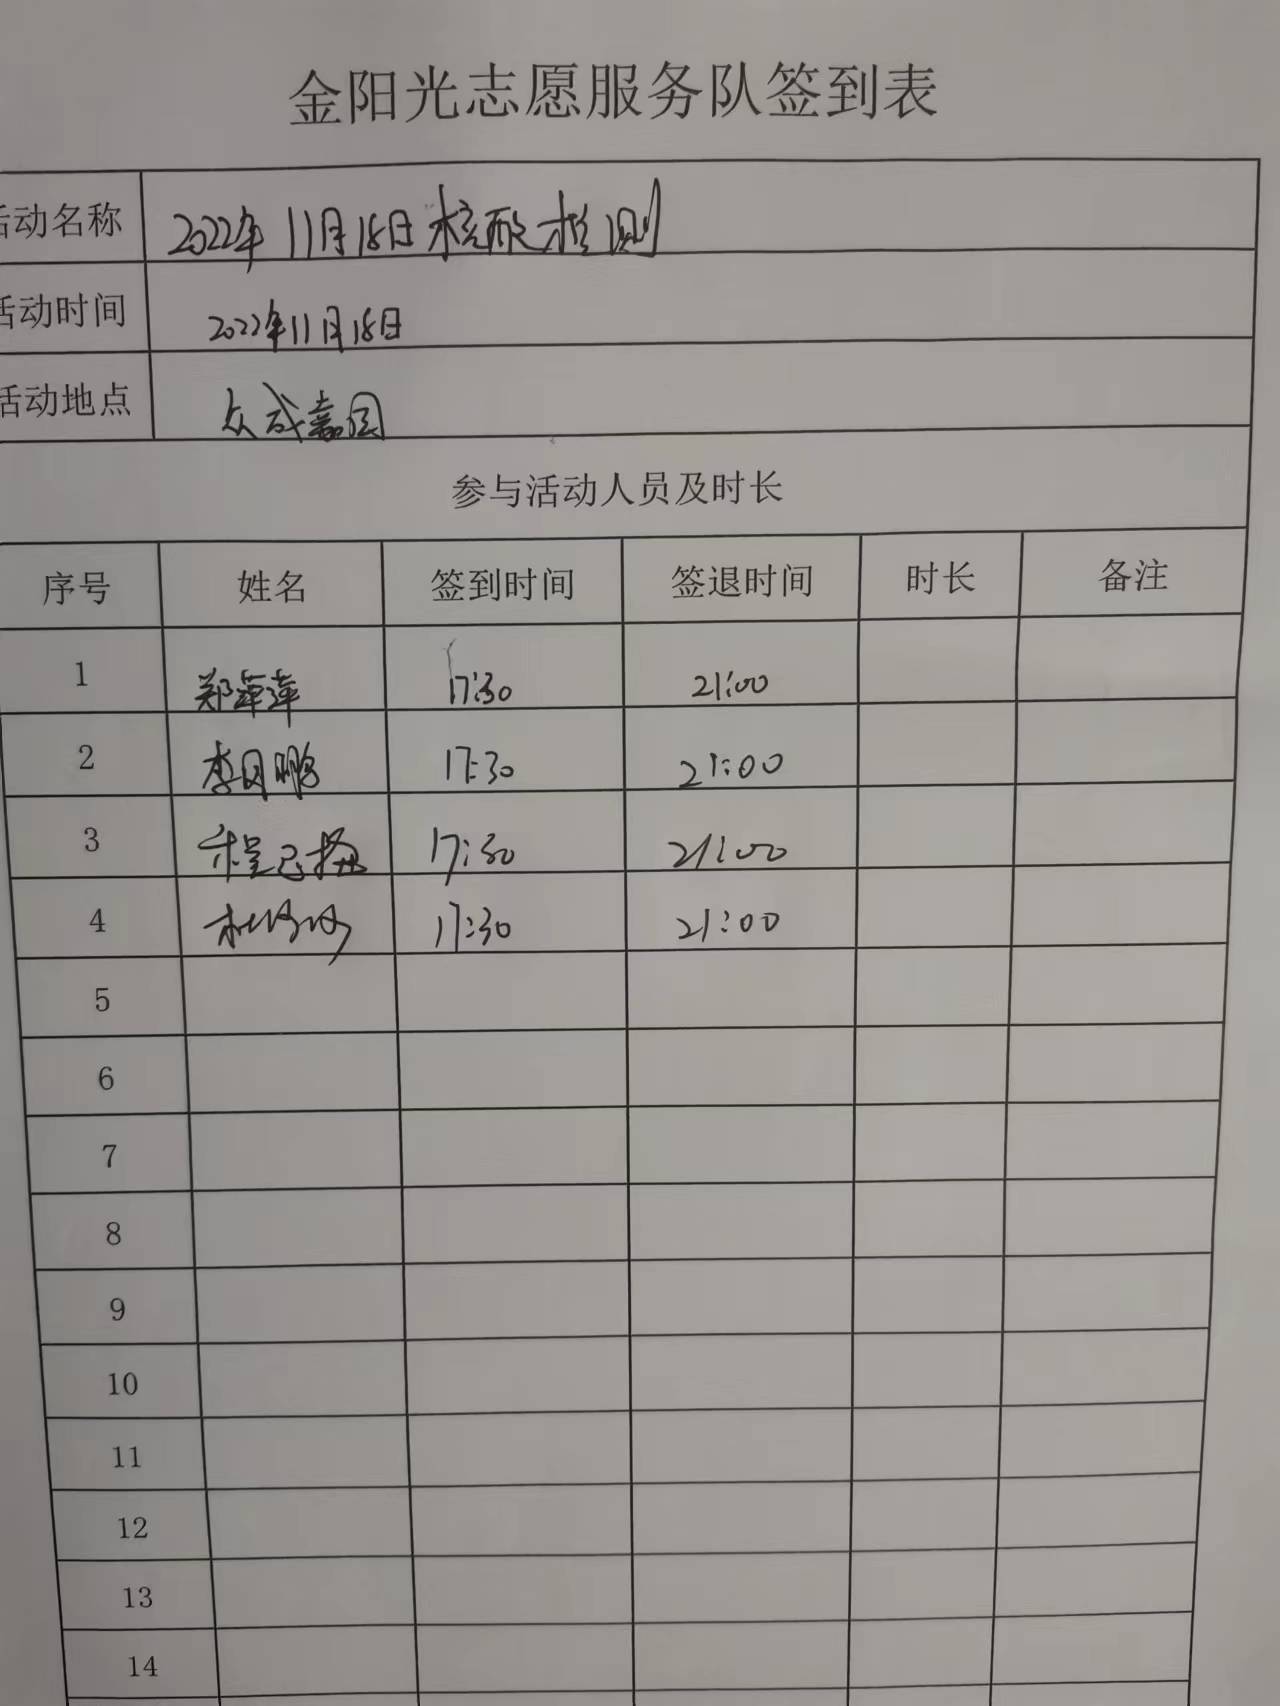 金阳光志愿服务队签到表
活动名称 2022年11月18日核酸检测
活动时间 2022年11月18日
活动地点 众成嘉园
参与活动人员及时长
序号 姓名 签到时间 签退时间 时长 备注
1 郑萍萍 17:30 21:00
2 李月鹏 17:30 21:00
3 程 17:30 21:00
4 杜 17:30 21:00
5
6
7
8
9
10
11
12
13
14